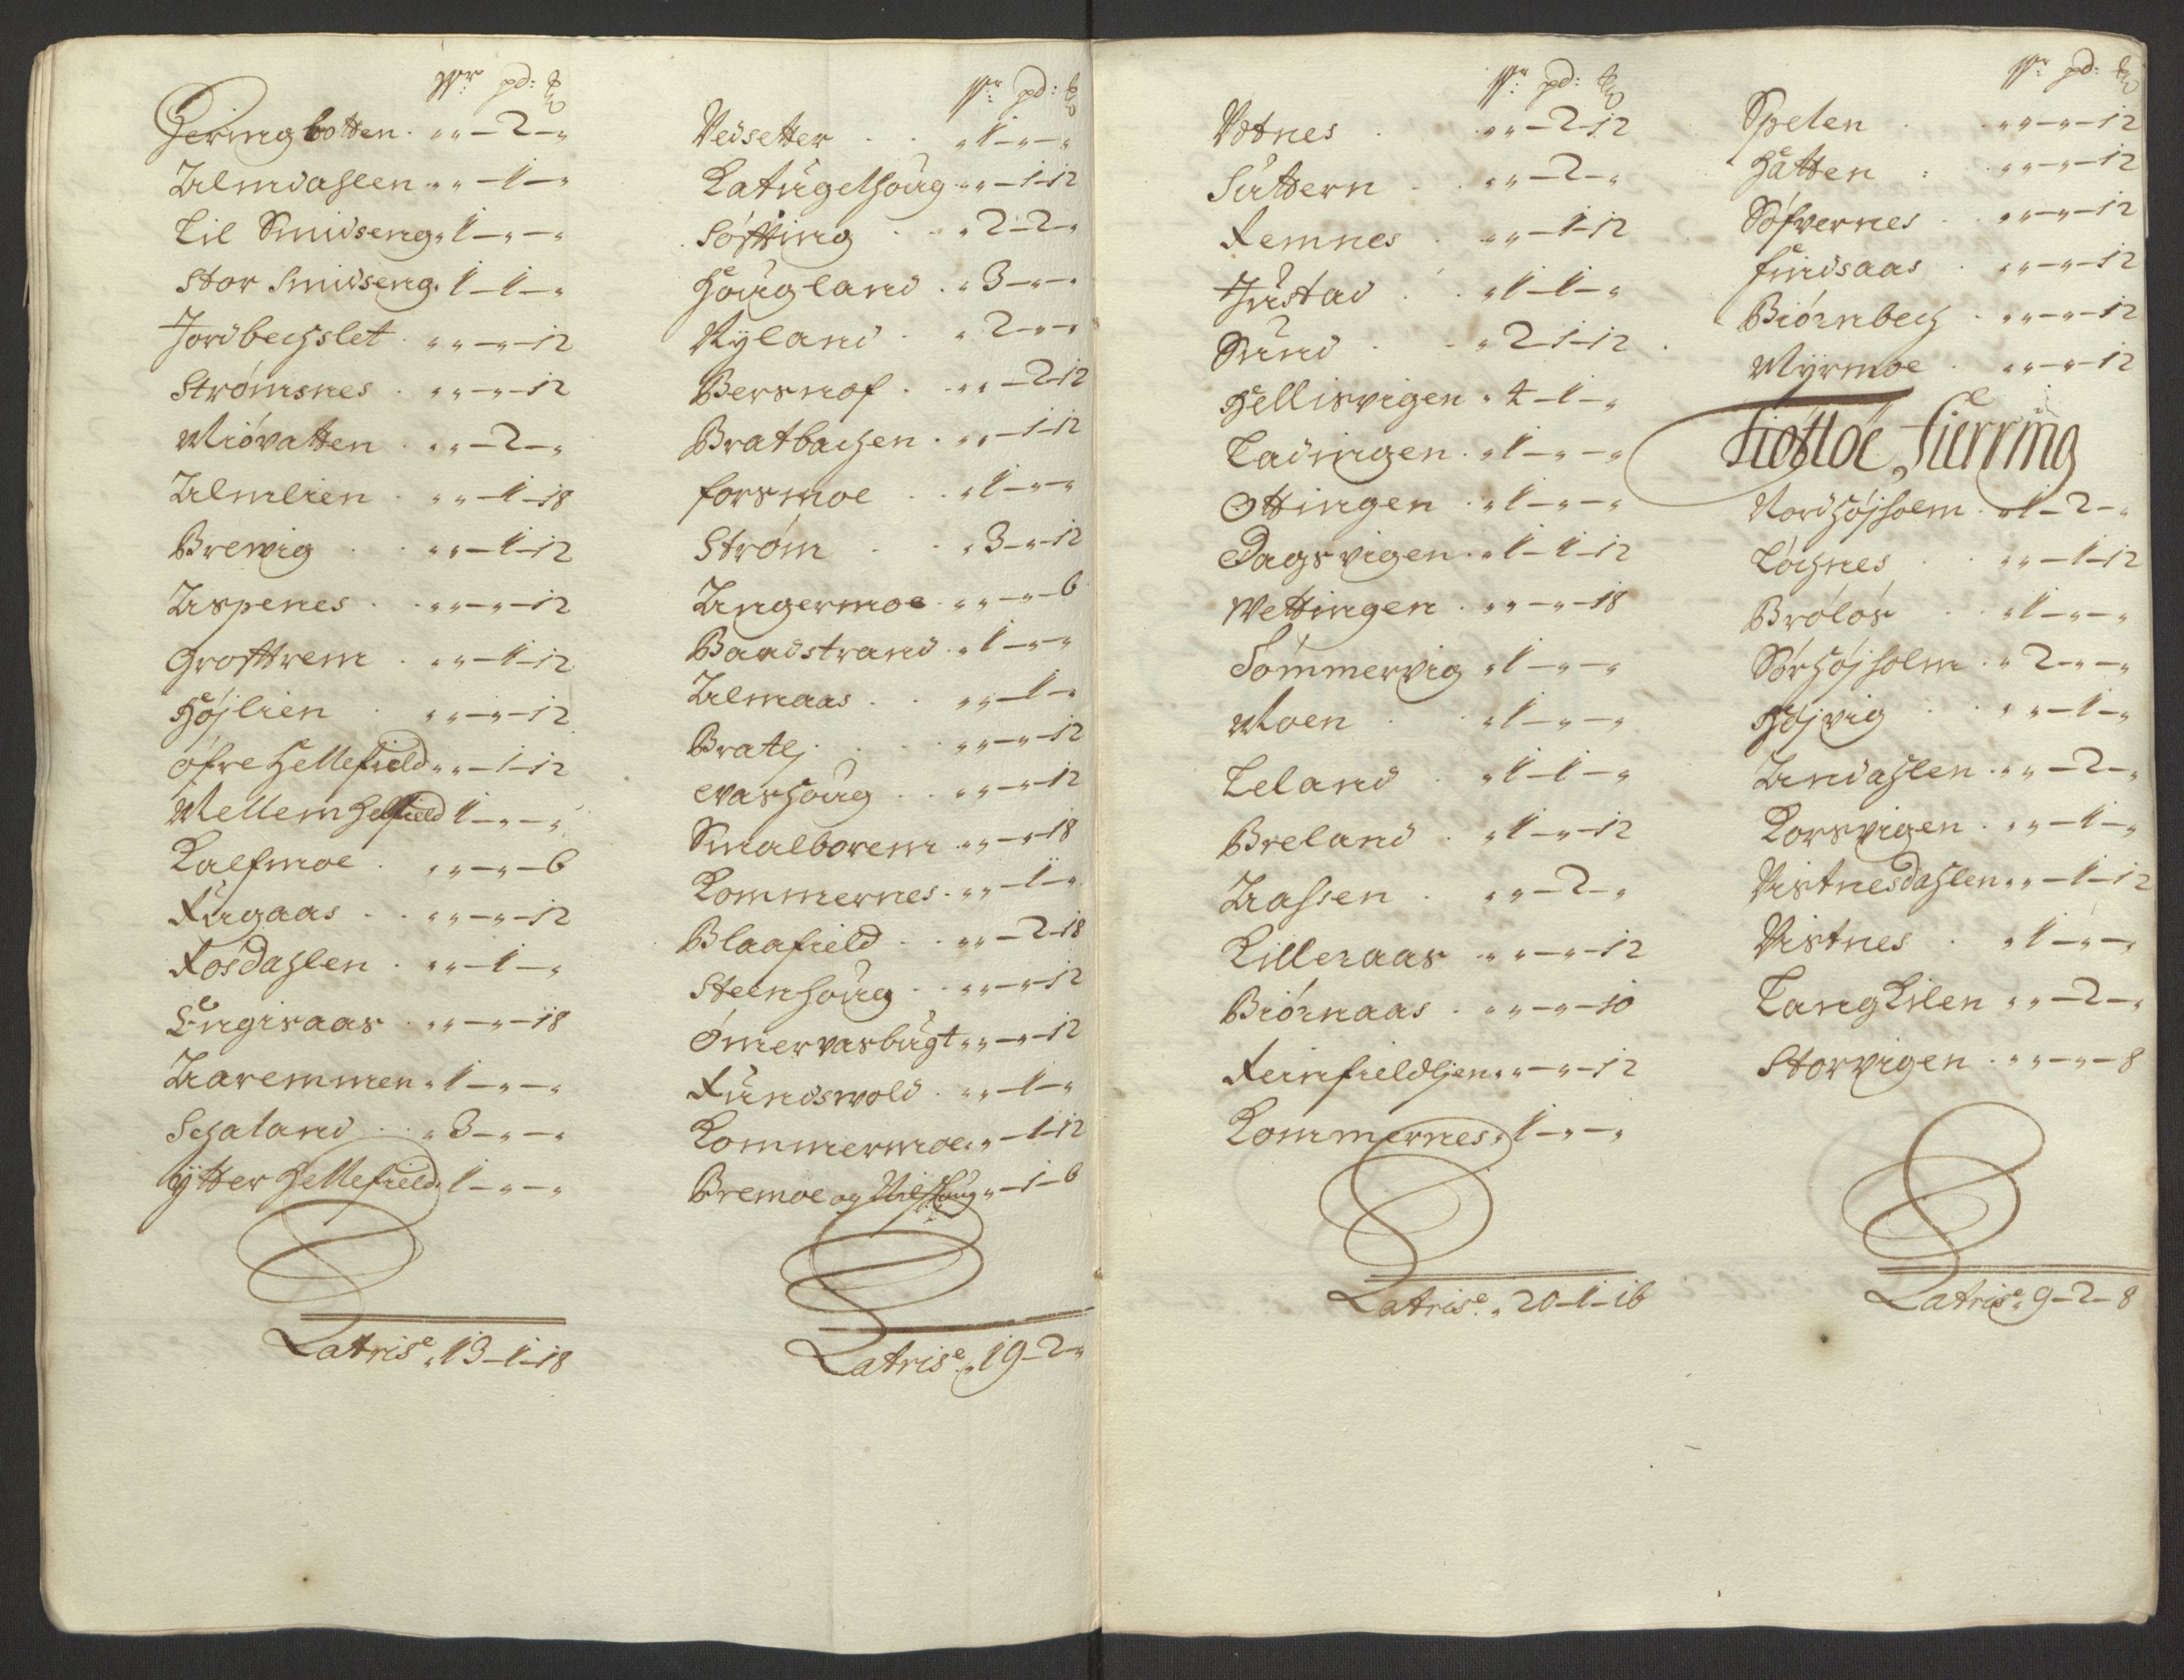 Wr pd: ℔
Heringbotten. „ „ – 2 – „
Almdahlen „ „ – 1 – „
Lil Smidseng „ 1 – „ – „
Stor Smidseng „ 1 – 1 – „
Jordbechslet „ „ – „ – 12
Strømsnes. „ „ – „ – 12
Miövatten. „ „ – 2 – „
Almlien. „ „ – 1 – 18
Brevig. „ „ – 1 – 12
Aspenes. „ „ – „ – 12
Grofttrem. „ „ – 1 – 12
Höjlien. „ „ – „ – 12
öfre Hellefield „ „ – 1 – 12
Mellem Helfield 1 – „ – „
Kalfmoe. „ „ – „ – 6
Rugaas. „ „ – „ – 12
Rösdahlen. „ „ – 1 – „
Engisaas. „ „ – „ – 18
Aaremmen „ 1 – „ – „
Schaland. „ 3 – „ – „
ÿtter Hellefield „ 1 – „ – „
Latris^e „ 13 – 1 – 18
Wr: pd: ℔
Vedsetter. „ 1 – „ – „
Katugelhoug „ „ – 1 – 12
Söftting. „ 2 – 2 – „
Hougland. „ 3 – „ – „
Nÿland. „ 2 – „ – „
Bersnof. „ „ – 2 – 12
Bratbachen. „ „ – 1 – 12
forsmoe. „ 1 – „ – „
Strøm. „ 3 – „ – 12
Ungermoe. „ „ – „ – 6
Baadstrand. „ 1 – „ – „
Almaas. „ „ – 1 – „
Bratlj. „ „ – „ – 12
evashoug. „ „ – „ – 12
Smalborem. „ „ – „ – 18
Kommernes. „ „ – 1 – „
Blaafield. „ „ – 2 – 18
Steenhoug. „ „ – „ – 12
Ömervasbugt „ „ – „ – 12
Rundswold. „ „ – 1 – „
Kommermoe „ „ – 1 – 12
Bremoe og „ – 1 – 6
Latris^e „ 19 – 2 – „
Wr: pd: ℔
Votnes. „ „ – 2 – 12
Suttern. „ „ – 2 – „
Remnes. „ „ – 1 – 12
Justad. „ 1 – 1 – „
Sund. „ 2 – 1 – 12
Hellisvigen „ 4 – 1 – „
Ladingen. „ 1 – „ – „
Ottingen. „ 1 – „ – „
Dagsvigen. „ 1 – 1 – 12
Wettingen. „ „ – „ – 18
Sömmervig „ 1 – „ – „
Moen. „ 1 – „ – „
Leland. „ 1 – 1 – „
Breland. „ 1 – „ – 12
Aassen. „ „ – 2 – „
Killeraas „ „ – „ – 12
Biörnaas. „ „ – „ – 10
Reinfieldljen „ „ – „ – 12
Kommernes „ 1 – „ – „
Latris^e „ 20 – 1 – 16
Wr: pd: ℔
Spelen. „ „ – „ – 12
Hatten. „ „ – „ – 12
Söfvernes. „ „ – „ – 12
findsaas. „ „ – „ – 12
Biörnbech. „ „ – „ – 12
Mÿrmoe. „ „ – „ – 12
Tiøttöe Fierring
Nordhöjholm „ 1 – 2 – „
Löchnes. „ „ – 1 – 12
Brölös. „ 1 – „ – „
Sörhöjholm. „ 2 – „ – „
Höjvig. „ „ – 1 – „
Andahlen. „ „ – 2 – „
Korsvigen. „ „ – 1 – „
Vistnesdahlen „ „ – 1 – 12
Vistnes. „ 1 – „ – „
Langkilen „ „ – 2 – „
Storvigen. „ „ – „ – 8
Latris^e „ 9 – 2 – 8